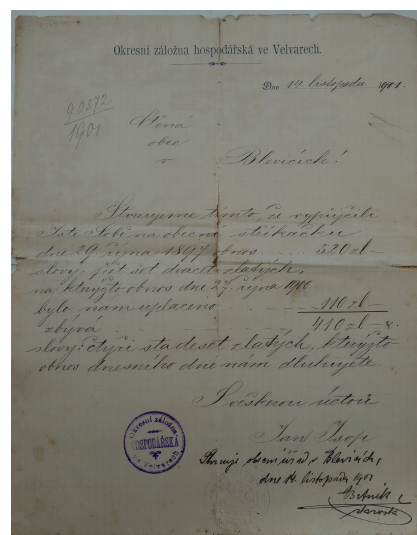 Okresní záložna hospodářská ve Velvarech.
Dne 14. listopadu 1901.
90372
1901
Ctěná
obec
v Blevicích!
Stvrzujeme tímto, že vypůjčili
Jste Sobě na obecní stříkačku
dne 29. října 1897 obnos 520 zl –
slovy: pět set dvacet zlatých,
na kterýžto obnos dne 27. října 1900
bylo nám uplaceno 110 zl –
zbývá 410 zl –
slovy: čtyři sta deset zlatých, kterýžto
obnos dnešního dne nám dluhujete.
S veškerou úctou
Jan
Okresní záložna
HOSPODÁŘSKÁ
ve Velvarech
Stvrzuje obecní úřad v Blevicích,
dne 14. listopadu 1901
starosta